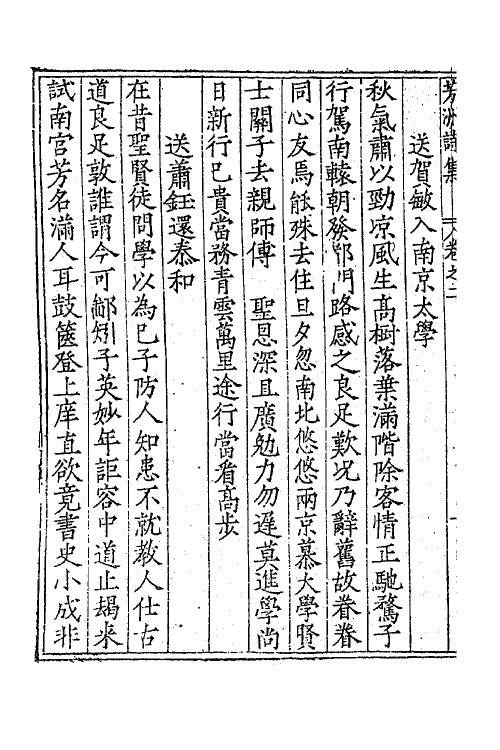 芳洲詩集 卷之二
送賀敏入南京太學
秋氣肅以勁凉風生髙樹落葉滿階除客情正馳騖子
行駕南轅朝發郭門路感之良足歎况乃辭舊故眷眷
同心友焉能殊去住旦夕忽南北悠悠兩京慕大學賢
士關子去親師傅 聖恩深且廣勉力勿遲莫進學尚
日新行已貴當務青雲萬里途行當看髙步
送蕭鈺還泰和
在昔聖賢徒問學以為已子防人知患不就敎人仕古
道良足敦誰謂今可鄙矧子英妙年詎容中道止朅来
試南宫芳名滿人耳鼓篋登上庠直欲竟書史小成非